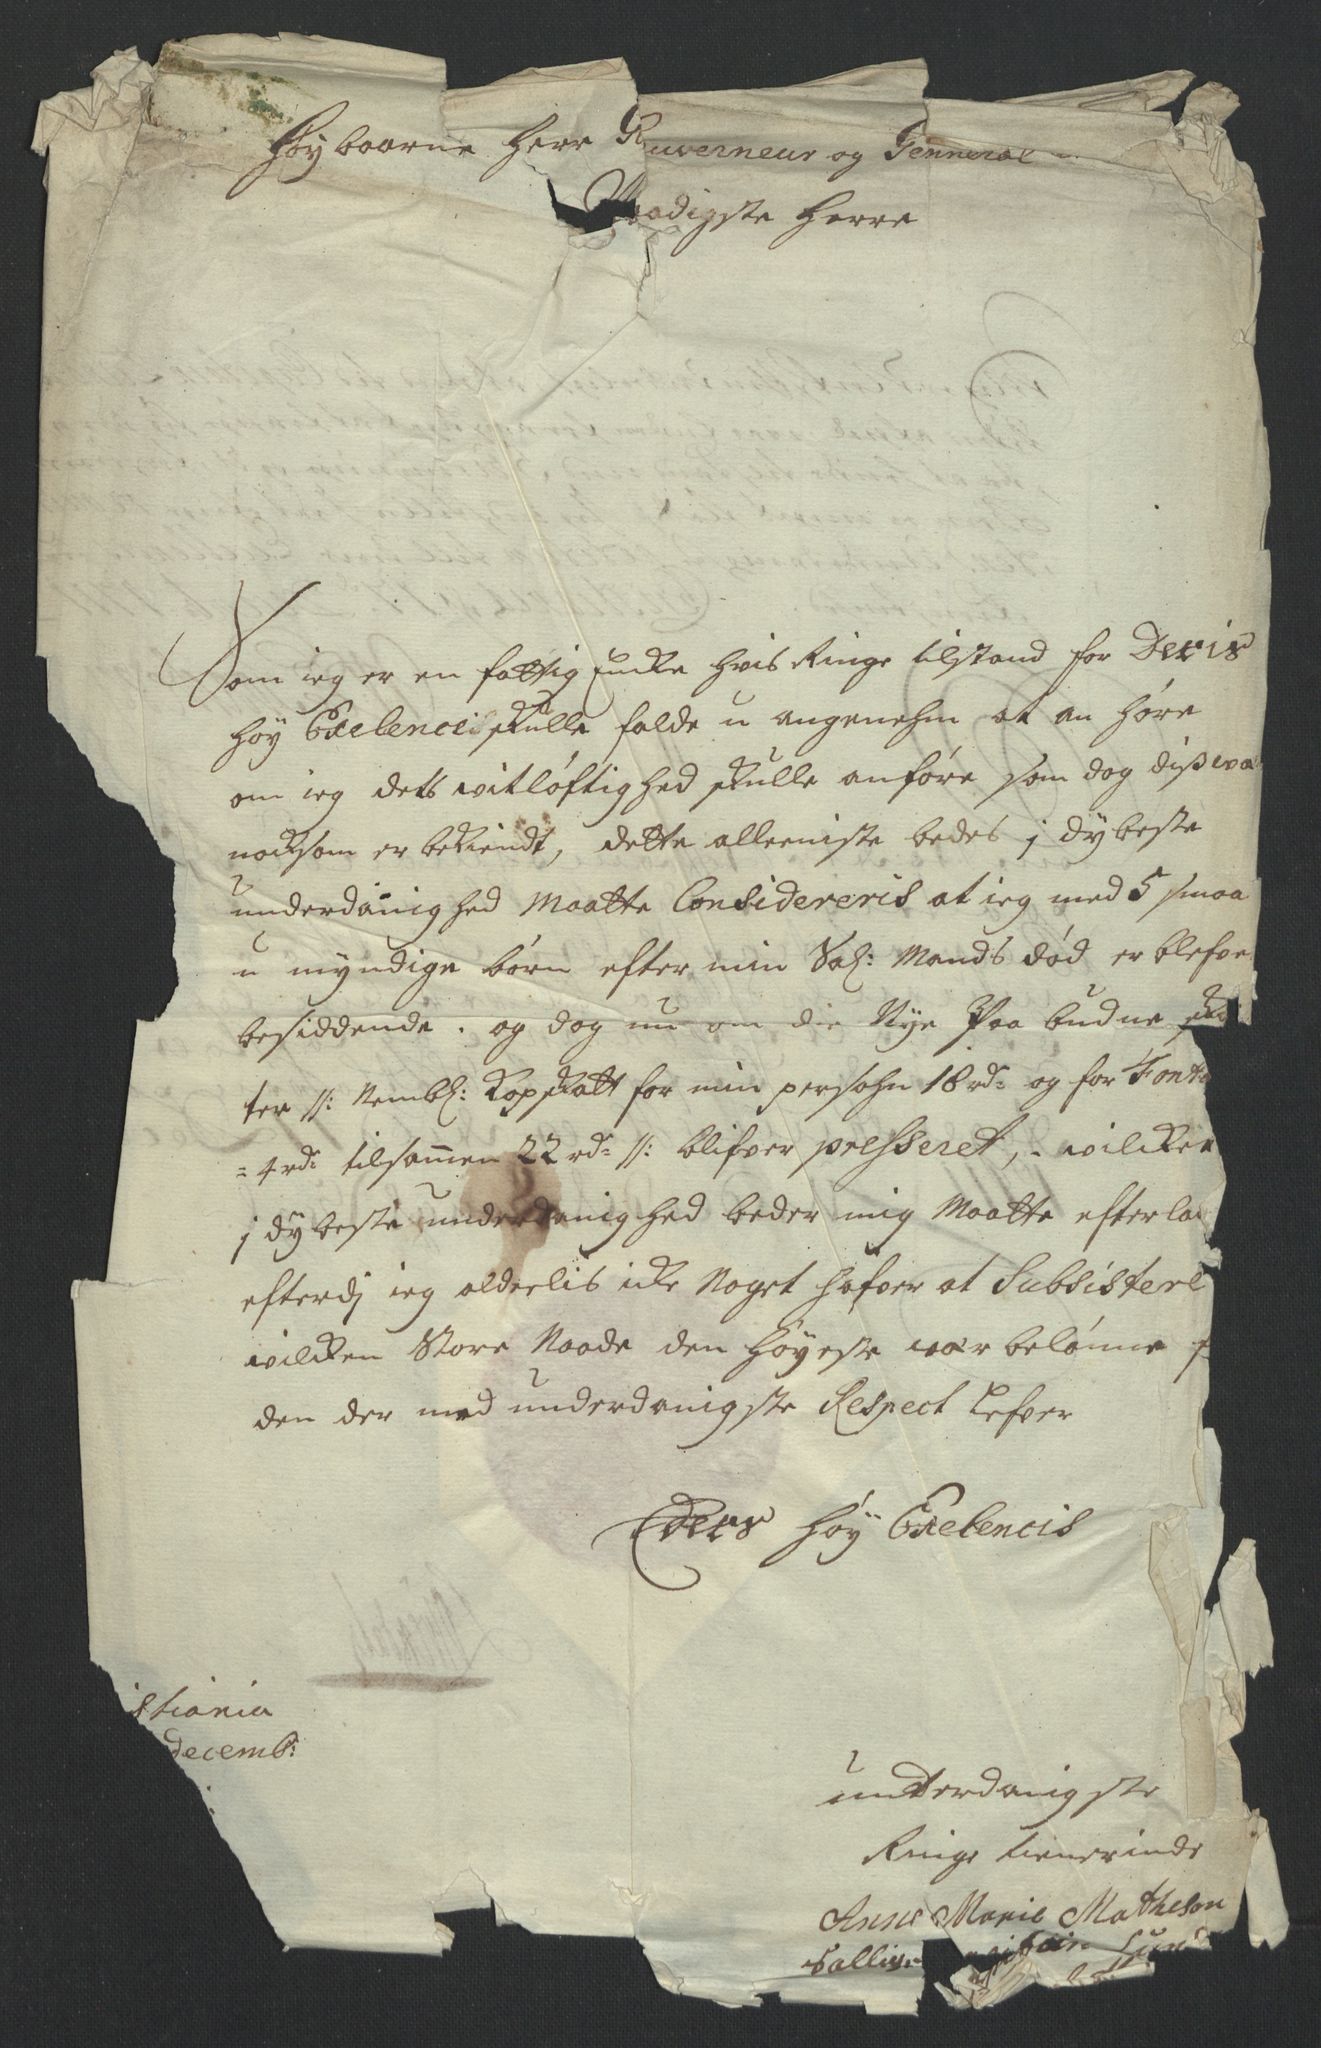 Høybaarne Herr Guverneur og Genneral
Naadigste Herre
Som ieg er en fattig Encke hvis Ringe tilstand for Deris
høy Exelencis skulle falde u angenehm at an høre
om ieg dets vitløftighed skulle anføre som dog dissevær
nocksom er bekiendt, dette alleeniste bedes j dybeste
underdanighed Maatte Considereris at ieg med 5 smaa
u myndige børn efter min Sal: Mands død er blefve
besiddende. og dog nu om die Nye Paa budne skat
ter //: Nembl: Kopskatt for min persohn 18 rd: og for Fonta
= 4 rd: tilsammen 22 rd: //: blifver presseret, wilcken
j dybeste underdanighed beder mig Maatte efterla
efterdj ieg alderlis icke Noget hafver at Subsistere
wilcken Store Naade den Høyeste wær belønne
den der med underdanigste Respect Lefver
Eders Høy Exelencis
stiania
decemb:
underdanigste
Ringe tienerinde
Anne Marie Matheson
Sallig